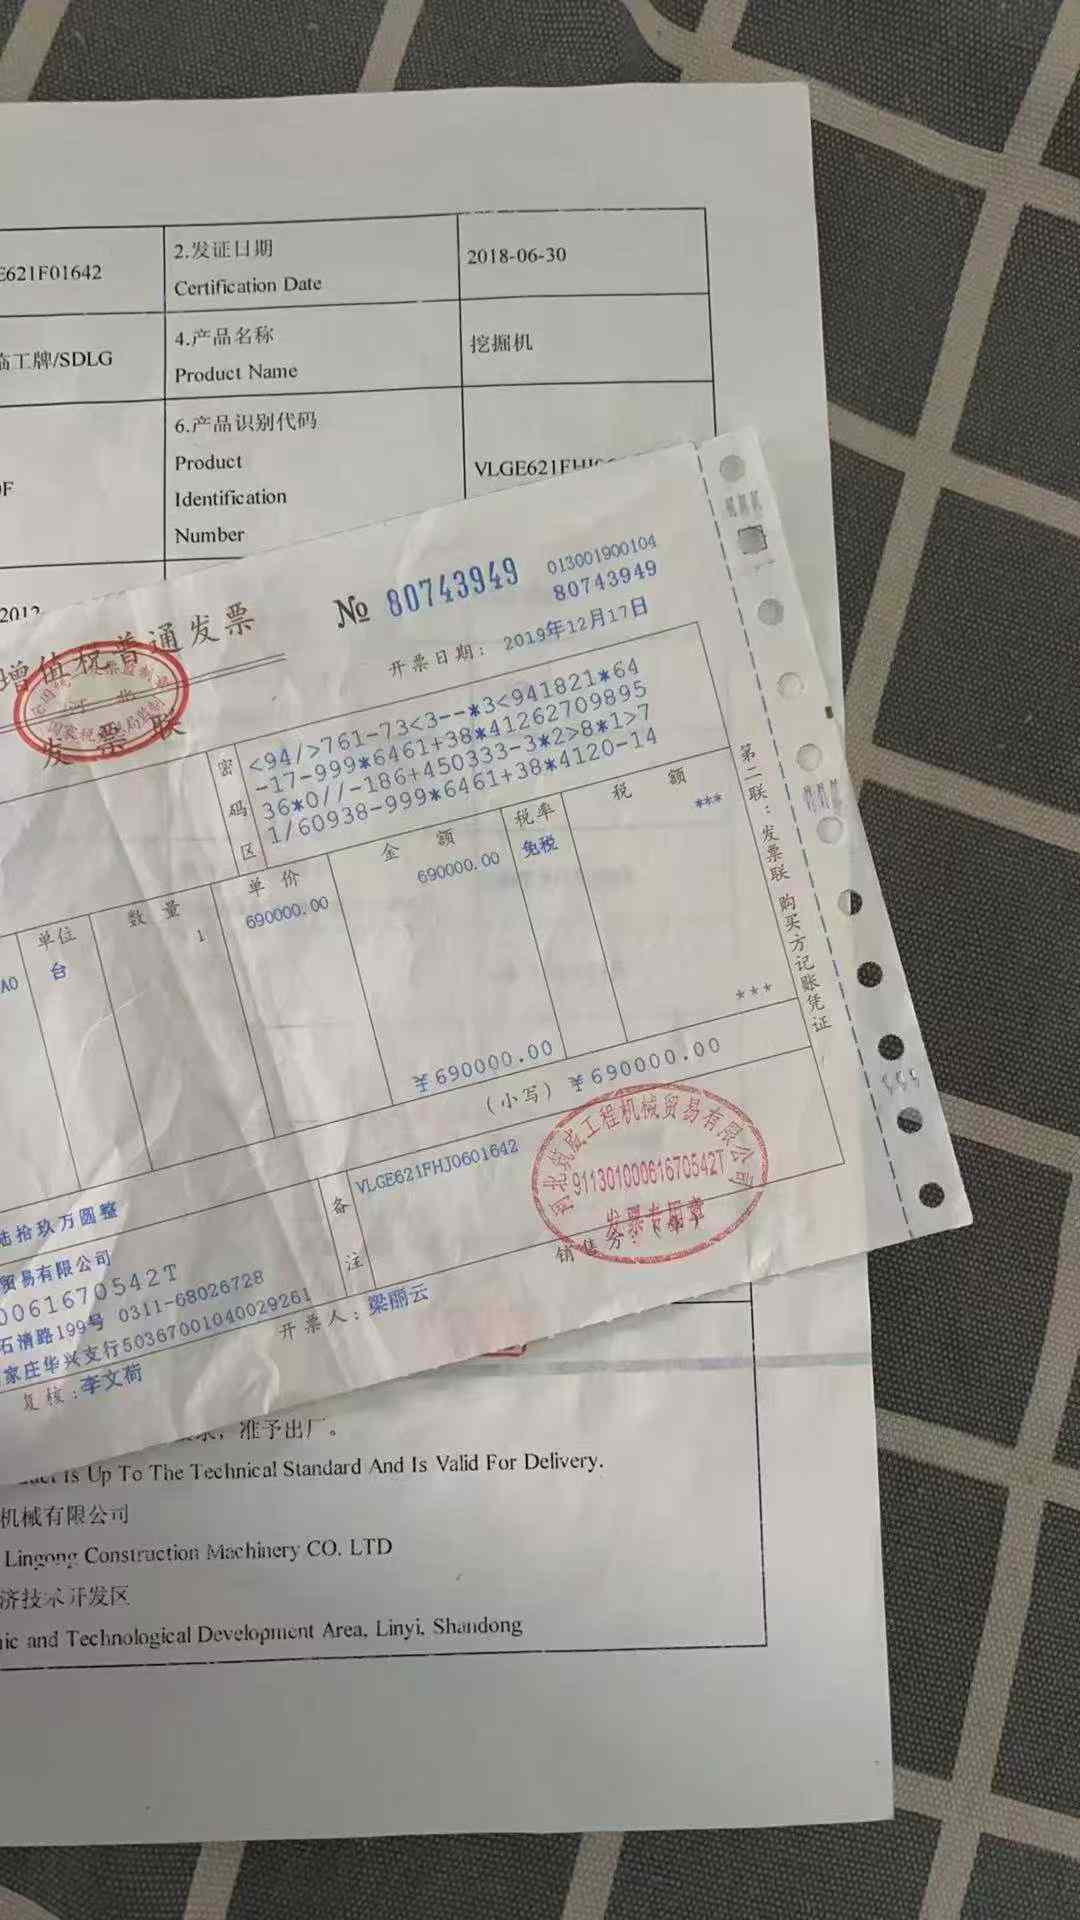 E621F01642
2.发证日期
Certification Date
2018-06-30
临工牌/SDLG
4.产品名称
Product Name
挖掘机
0F
6.产品识别代码
Product
Identification
Number
VLGE621FHJ0
2012
增值税普通发票
发票联
№ 80743949
013001900104
80743949
开票日期: 2019年12月17日
密码区
<94/>761-73<3--*3<941821*64
-17-999*6461+38*41262709895
36*0//-186+450333-3*2>8*1>7
1/60938-999*6461+38*4120-14
单位
数 量
单 价
金 额
税率
税 额
A0
台
1
690000.00
690000.00
免税
***
¥690000.00
***
陆拾玖万圆整
(小写) ¥690000.00
贸易有限公司
0061670542T
石清路199号 0311-68026728
家庄华兴支行50367001040029261
备注
VLGE621FHJ0601642
复核:李文荷
开票人:梁丽云
销售方:(章)
工程机械贸易有限公司
91130100061670542T
发票专用章
第二联:发票联 购买方记账凭证
,准予出厂。
Is Up To The Technical Standard And Is Valid For Delivery.
机械有限公司
Lingong Construction Machinery CO. LTD
济技术开发区
nic and Technological Development Area, Linyi, Shandong